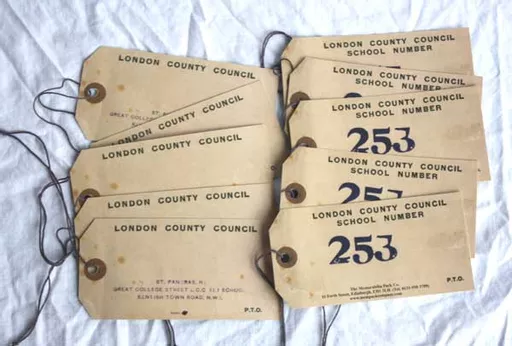 LONDON COUNTY COUNCIL
ST. PANCRAS, N.
GREAT COLLEGE
LONDON COUNTY COUNCIL
LONDON COUNTY COUNCIL
LONDON COUNTY COUNCIL
LONDON COUNTY COUNCIL
ST. PANCRAS, N.
GREAT COLLEGE STREET L.C.C.
KENTISH TOWN ROAD, N.W.1.
P.T.O.
LONDON COUNTY COUNCIL
SCHOOL NUMBER
LONDON COUNTY COUNCIL
SCHOOL NUMBER
LONDON COUNTY COUNCIL
SCHOOL NUMBER
253
LONDON COUNTY COUNCIL
SCHOOL NUMBER
LONDON COUNTY COUNCIL
SCHOOL NUMBER
253
P.T.O.
The Memorabilia Pack Co.